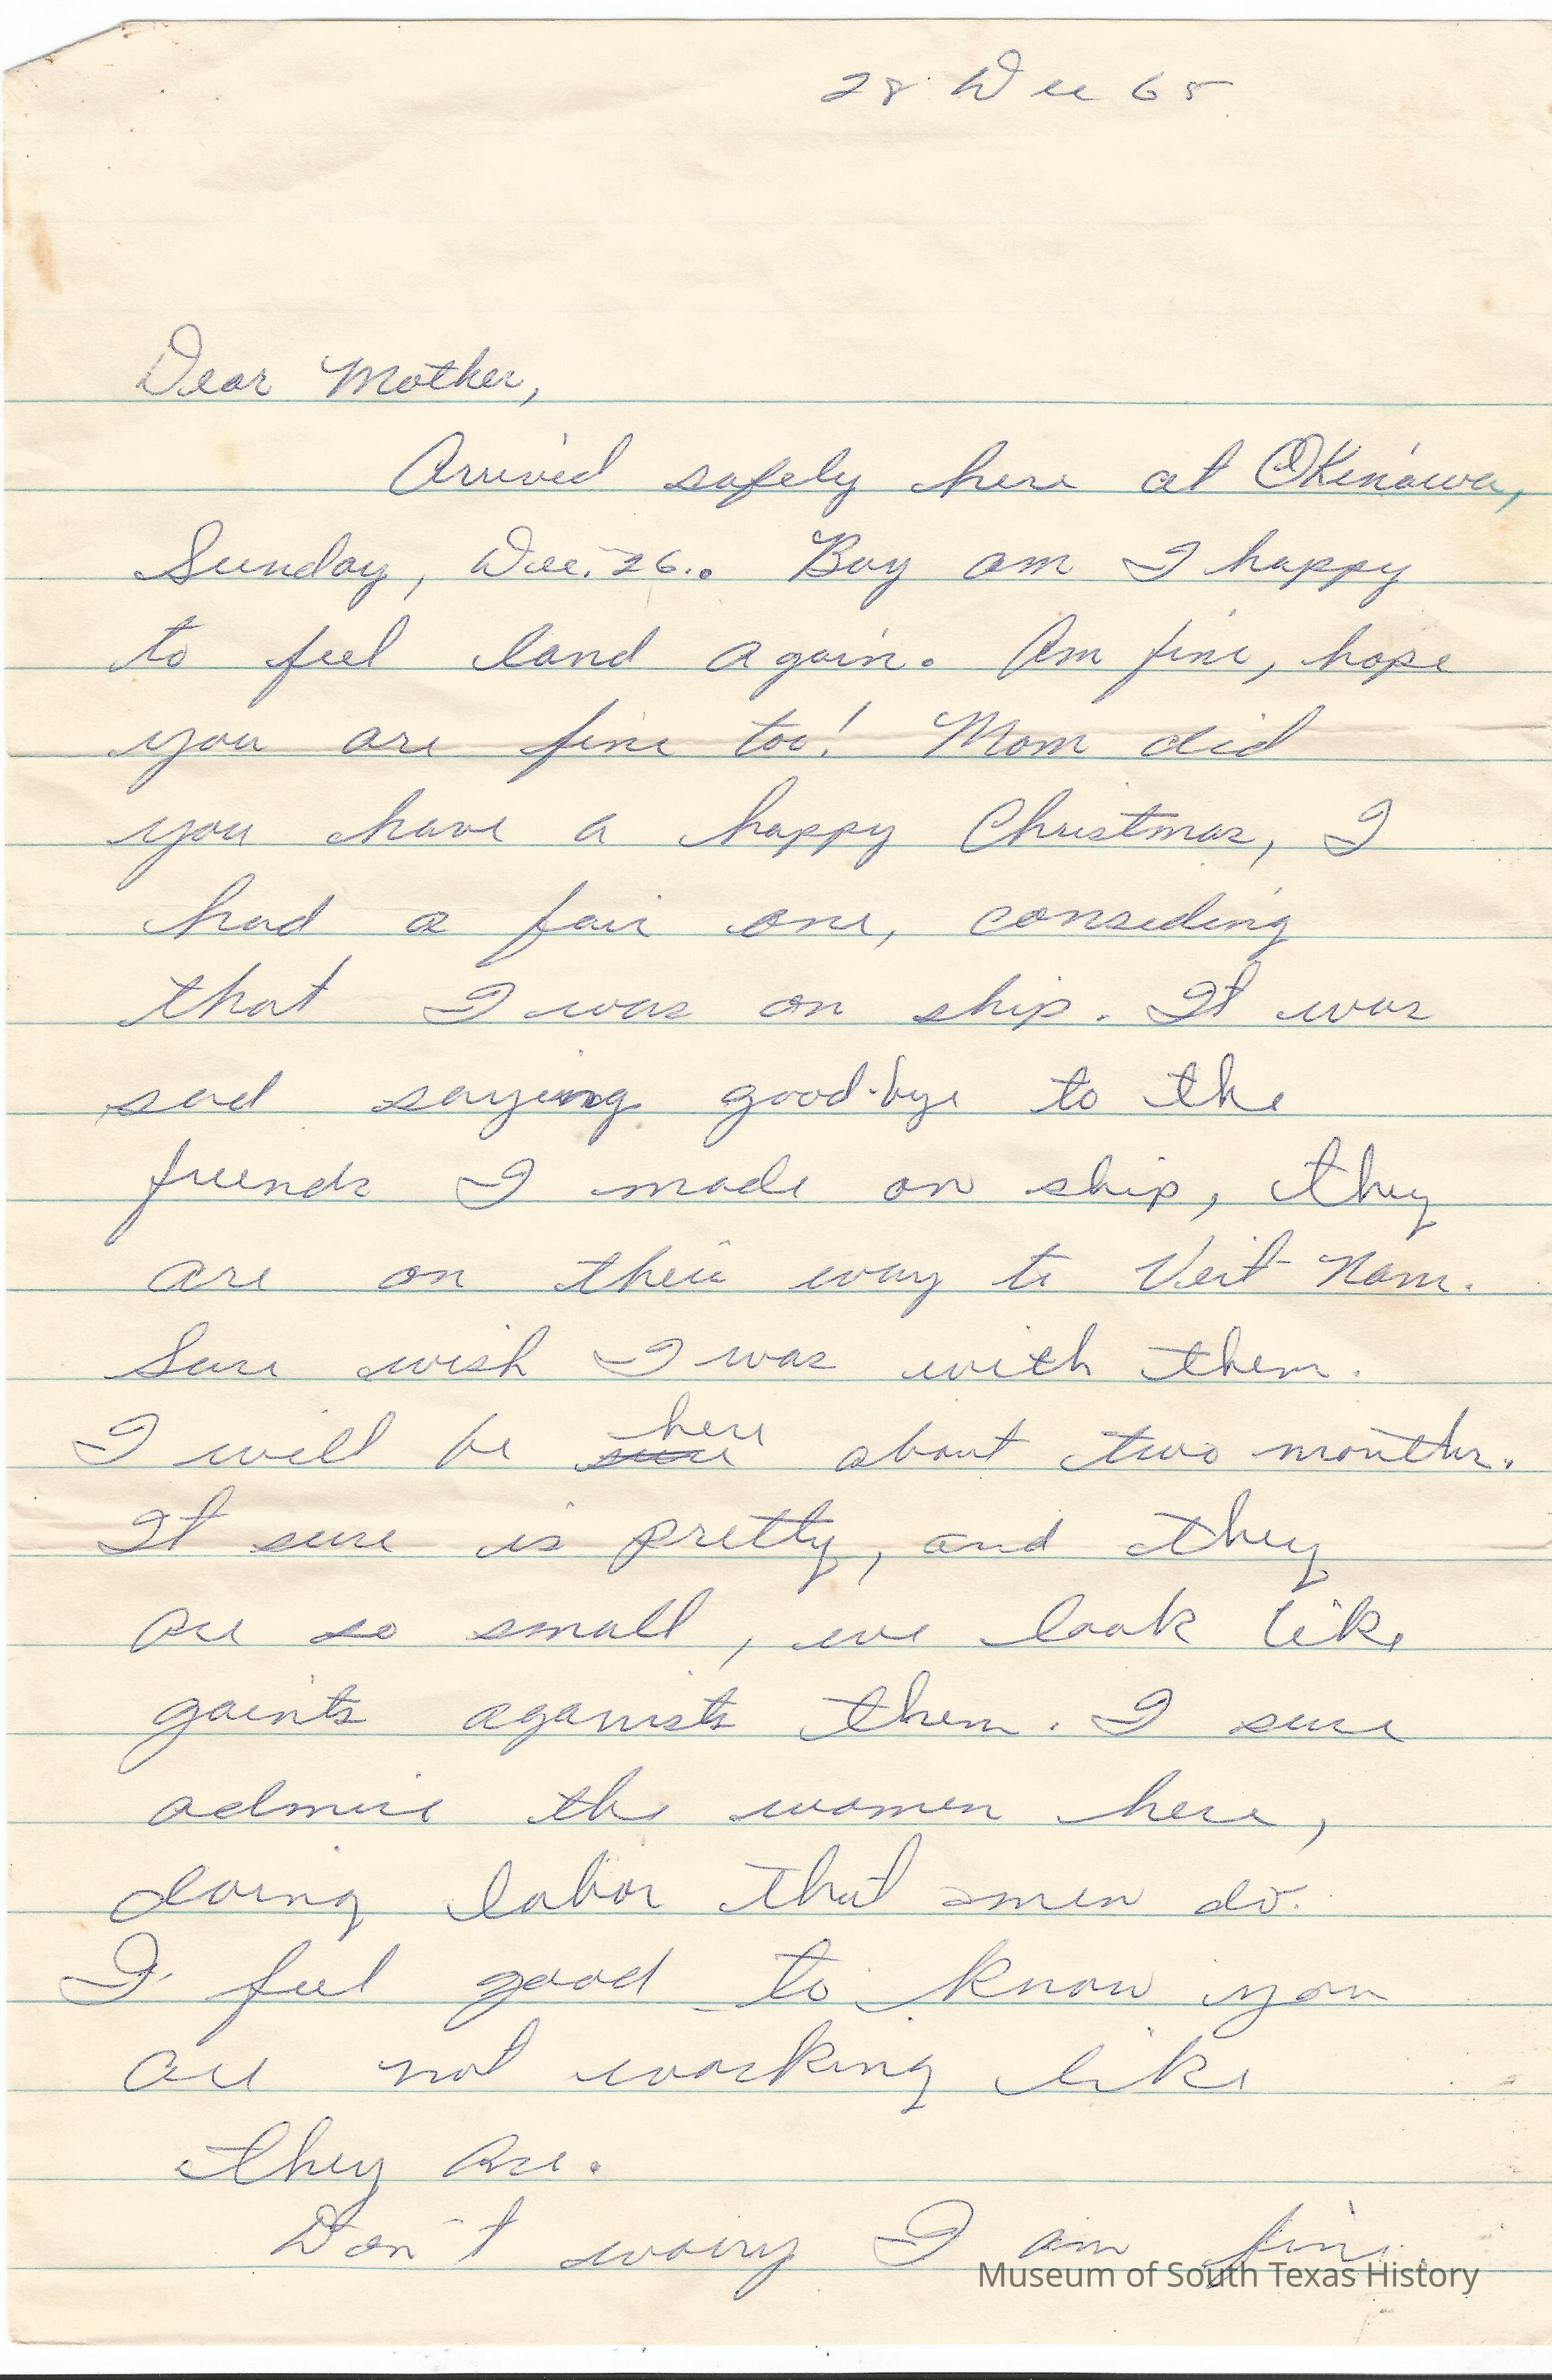 28 Dec 65
Dear Mother,
Arrived safely here at Okinawa,
Sunday, Dec. 26.. Boy am I happy
to feel land again. Am fine, hope
you are fine too! Mom did
you have a happy Christmas, I
had a fair one, consideing
that I was on ship. It was
sad saying good-bye to the
friends I made on ship, they
are on their way to Veit-Nam.
Sure wish I was with them.
I will be here about two months.
It sure is pretty, and they
are so small, we look like
gaints aganists them. I sure
admire the women here,
doing labor that men do.
I feel good to know you
are not working like
they are.
Don't worry I am fine.
Museum of South Texas History